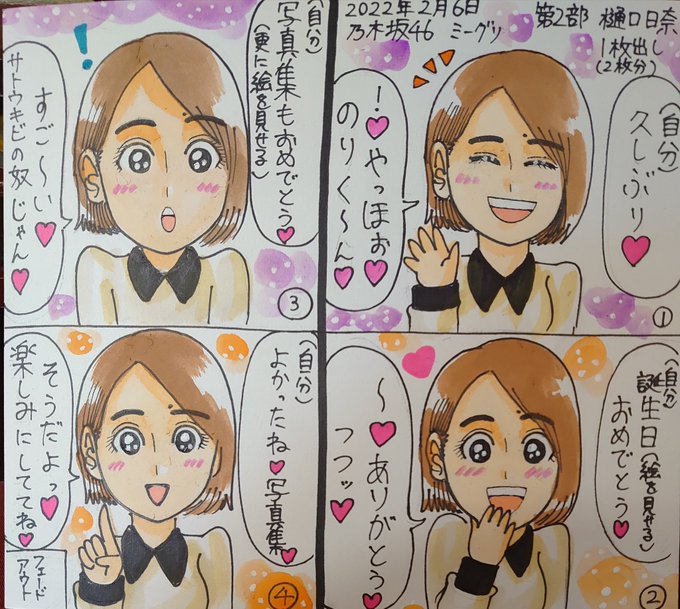 2022年2月6日
乃木坂46 ミーグリ
第2部 樋口日奈
1枚出し
(2枚分)
(自分)
久しぶり♥
！♥やっほぉ♥
のりく～ん♥
①
(自分)
誕生日(絵を見せる)
おめでとう♥
～♥ありがとう♥
フフッ♥
②
(自分)
写真集もおめでとう♥
(更に絵を見せる)
!
すご～い♥
サトウキビの奴じゃん♥
③
(自分)
よかったね♥写真集♥
そうだよっ♥
楽しみにしててね♥
フェード
アウト
④